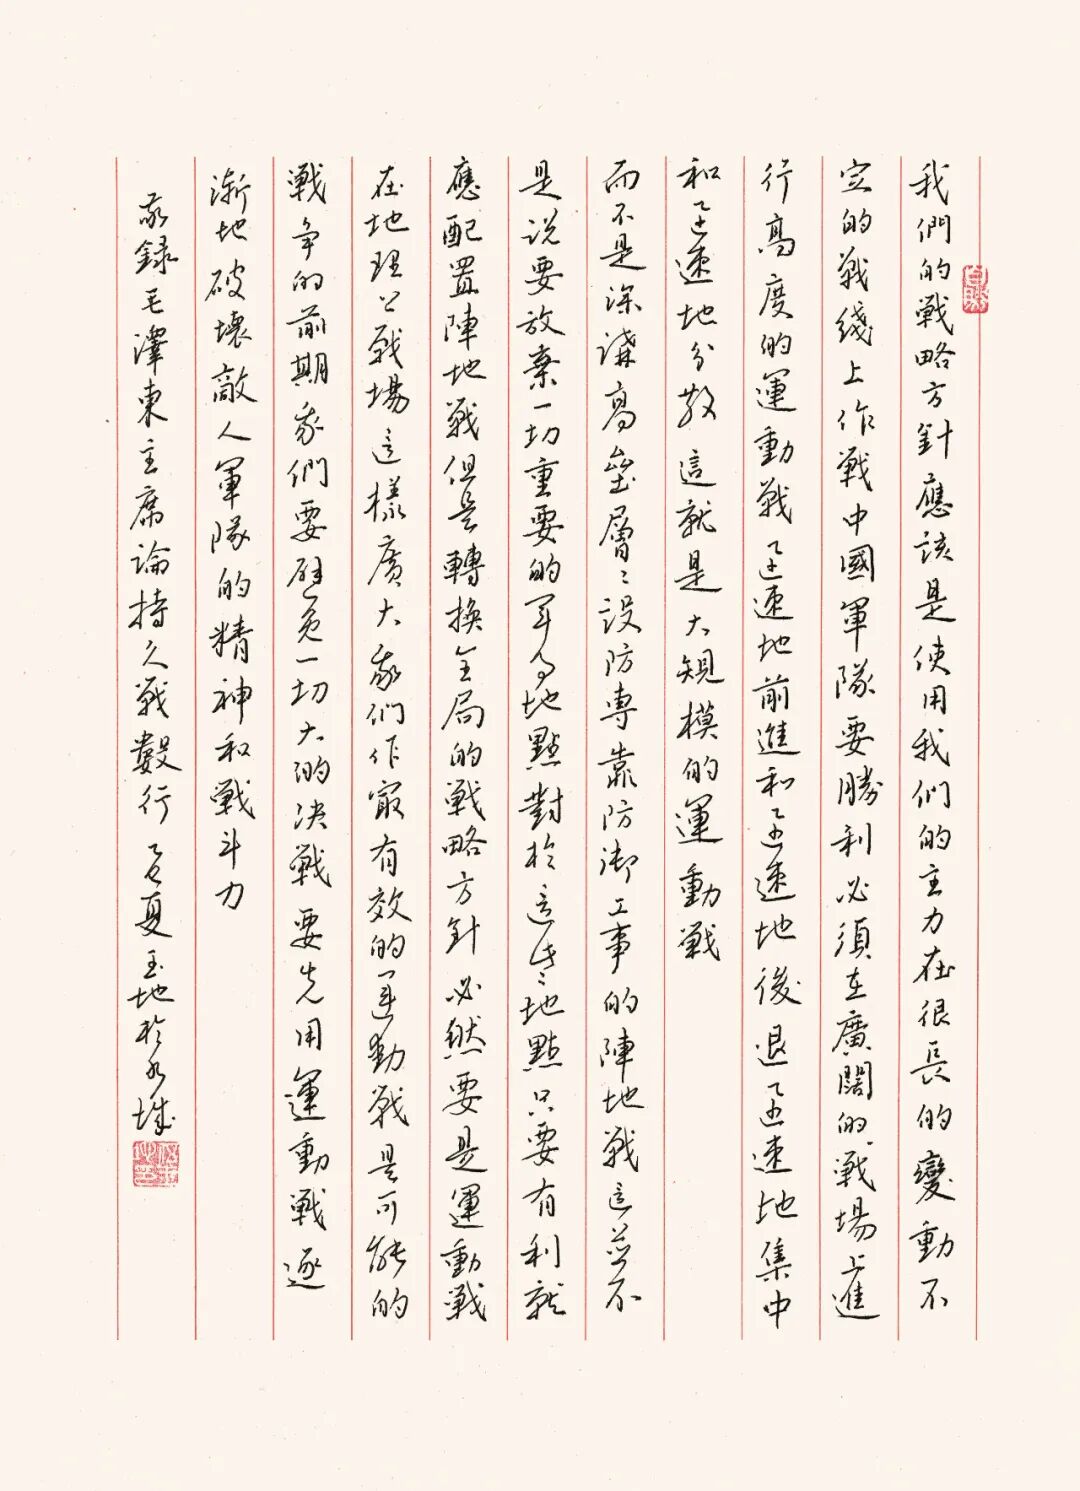 我們的戰略方針應該是使用我們的主力在很長的變動不
定的戰綫上作戰中國軍隊要勝利必須在廣闊的戰場上進
行高度的運動戰迅速地前進和迅速地後退迅速地集中
和迅速地分散這就是大規模的運動戰
而不是深溝高壘層〻設防專靠防御工事的陣地戰這並不
是説要放棄一切重要的軍事地點對於這些地點只要有利就
應配置陣地戰但是轉換全局的戰略方針必然要是運動戰
在地理戰場這樣廣大我們作最有效的運動戰是可能的
戰争的前期我們要避免一切大的决戰要先用運動戰逐
漸地破壞敵人軍隊的精神和戰斗力
敬録毛澤東主席論持久戰數行 夏玉地於